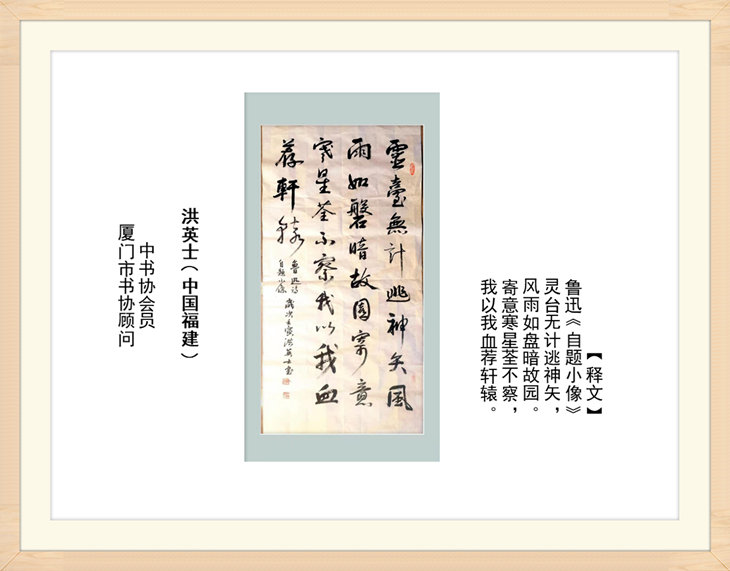 【释文】
鲁迅《自题小像》
灵台无计逃神矢，
风雨如盘暗故园。
寄意寒星荃不察，
我以我血荐轩辕。
靈臺無計逃神矢風
雨如磐暗故園寄意
寒星荃不察我以我血
荐軒轅
魯迅詩
自題小像
歲次壬寅洪英士書
洪英士（中国福建）
中书协会员
厦门市书协顾问